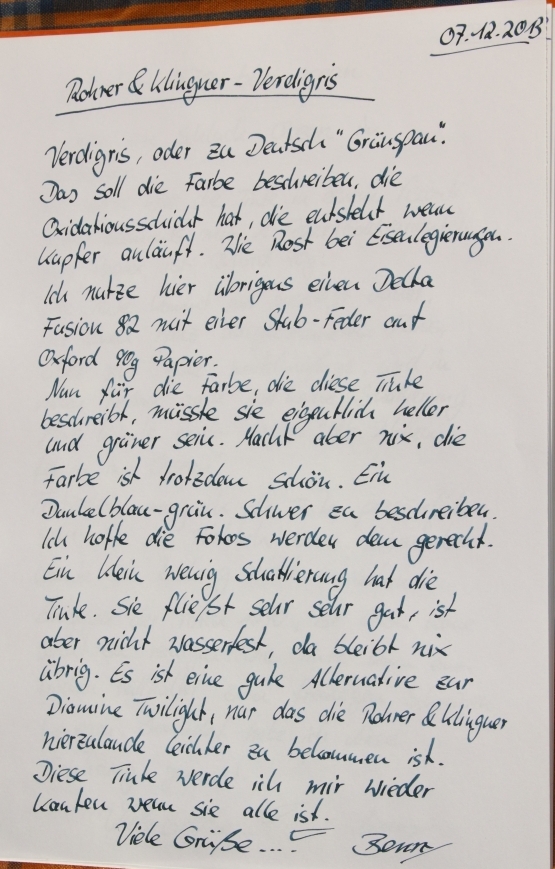 07.12.2013
Rohrer & Klingner - Verdigris
Verdigris, oder zu Deutsch "Grünspan".
Das soll die Farbe beschreiben, die
Oxidationsschicht hat, die entsteht wenn
Kupfer anläuft. Wie Rost bei Eisenlegierungen.
Ich nutze hier übrigens einen Delta
Fusion 82 mit einer Stub-Feder auf
Oxford 90g Papier.
Nun für die Farbe, die diese Tinte
beschreibt, müsste sie eigentlich heller
und grüner sein. Macht aber nix, die
Farbe ist trotzdem schön. Ein
Dunkelblau-grün. Schwer zu beschreiben.
Ich hoffe die Fotos werden dem gerecht.
Ein klein wenig Schattierung hat die
Tinte. Sie fließt sehr sehr gut, ist
aber nicht wasserfest, da bleibt nix
übrig. Es ist eine gute Alternative zur
Diamine Twilight, nur das die Rohrer & Klingner
hierzulande leichter zu bekommen ist.
Diese Tinte werde ich mir wieder
kaufen wenn sie alle ist.
Viele Grüße....